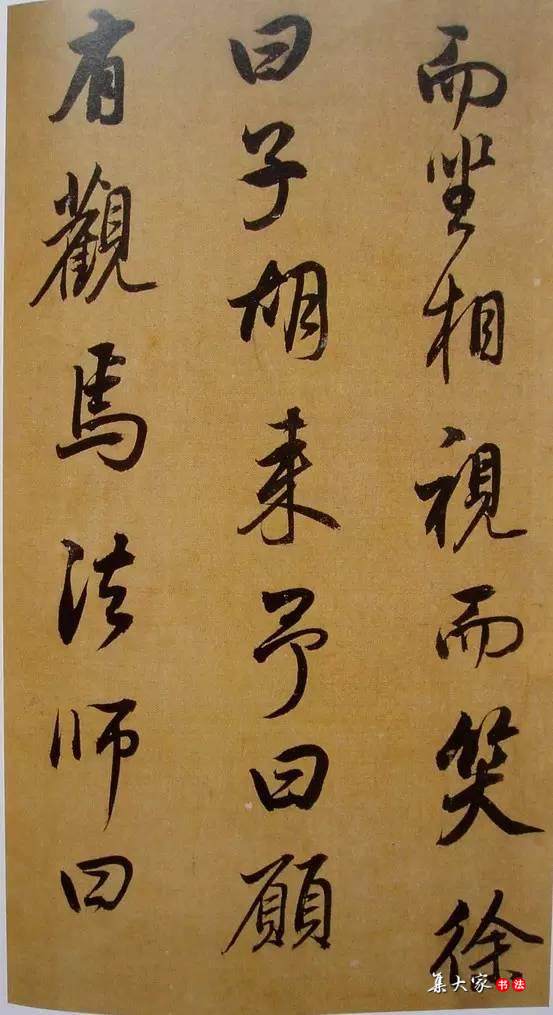 而坐相視而笑徐
曰子胡来予曰願
有觀焉法师曰
集大家书法